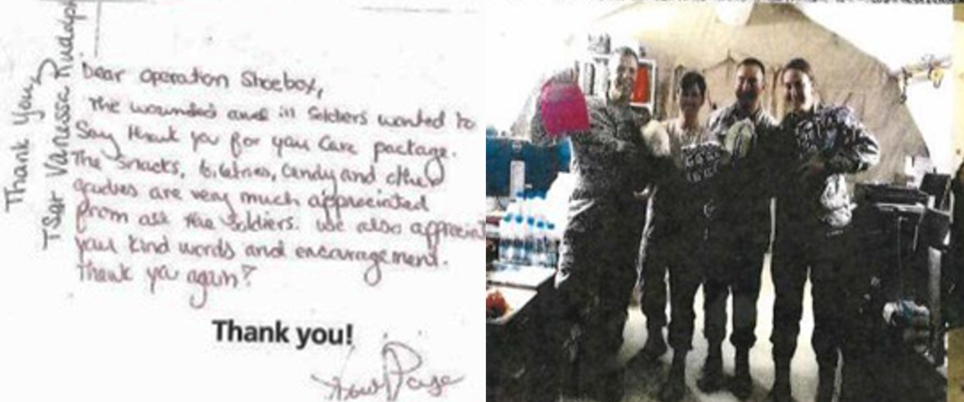 Dear Operation Shoebox,
The wounded and ill Soldiers wanted to
Say thank you for you Care package.
The Snacks, Candy and other
goodies are very much appreciated
from all the Soldiers. We also appreciat
your kind words and encouragement.
Thank you again!
Thank you!
Thank You,
Vanessa Rudolph